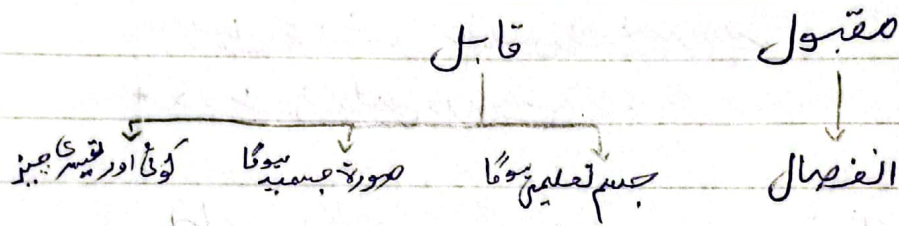 مقبول قابل
انفصال جسم تعلیمی ہوگا صورۃ جسمیہ ہوگا کوئی اور تیسری چیز